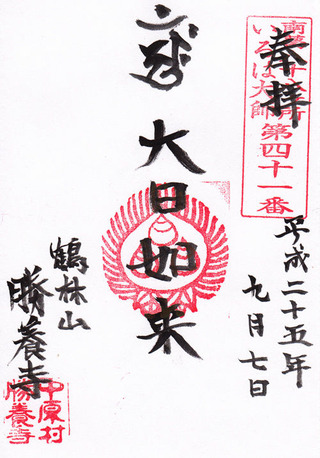 奉拝
いろは大師
第四十一番
平成二十五年
九月七日
大日如来
鶴林山
勝養寺
中原村
勝養寺